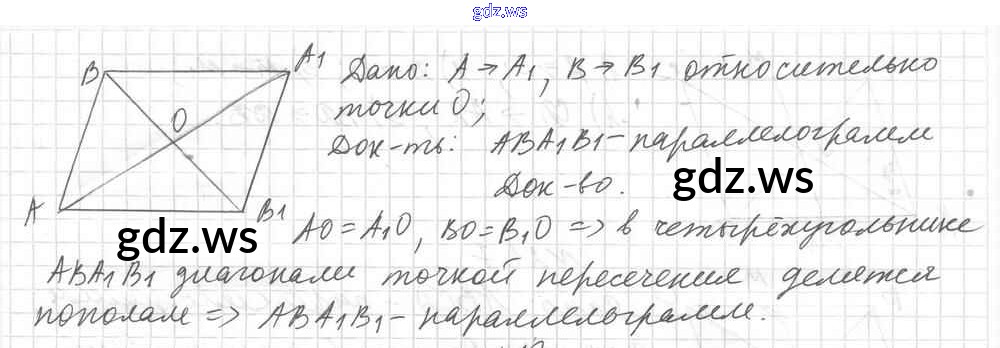 gdz.ws
B A1 Дано: A → A1, B → B1 относительно
O точки O;
Док-ть: ABA1B1 - параллелограмм
Док-во. gdz.ws
A B1 AO = A1O, BO = B1O => в четырёхугольнике
gdz.ws
ABA1B1 диагонали точкой пересечения делятся
пополам => ABA1B1 - параллелограмм.